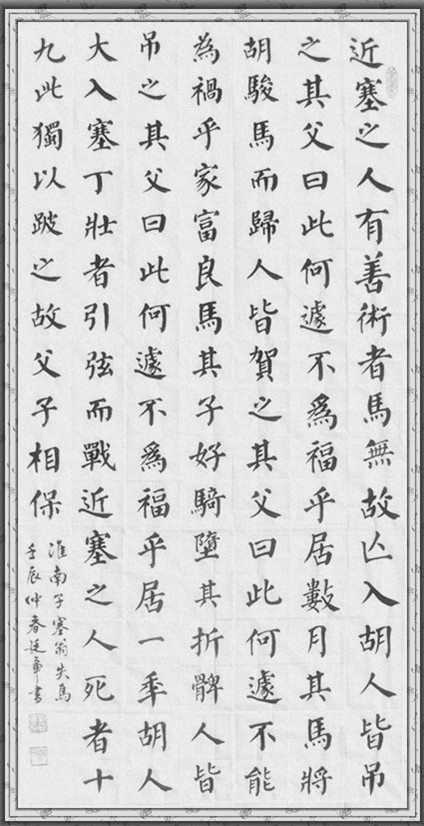 近塞之人有善術者馬無故亡入胡人皆吊
之其父曰此何遽不爲福乎居數月其馬將
胡駿馬而歸人皆賀之其父曰此何遽不能
為禍乎家富良馬其子好騎墮其折髀人皆
吊之其父曰此何遽不爲福乎居一秊胡人
大入塞丁壯者引弦而戰近塞之人死者十
九此獨以跛之故父子相保
淮南子塞翁失馬
壬辰仲春書